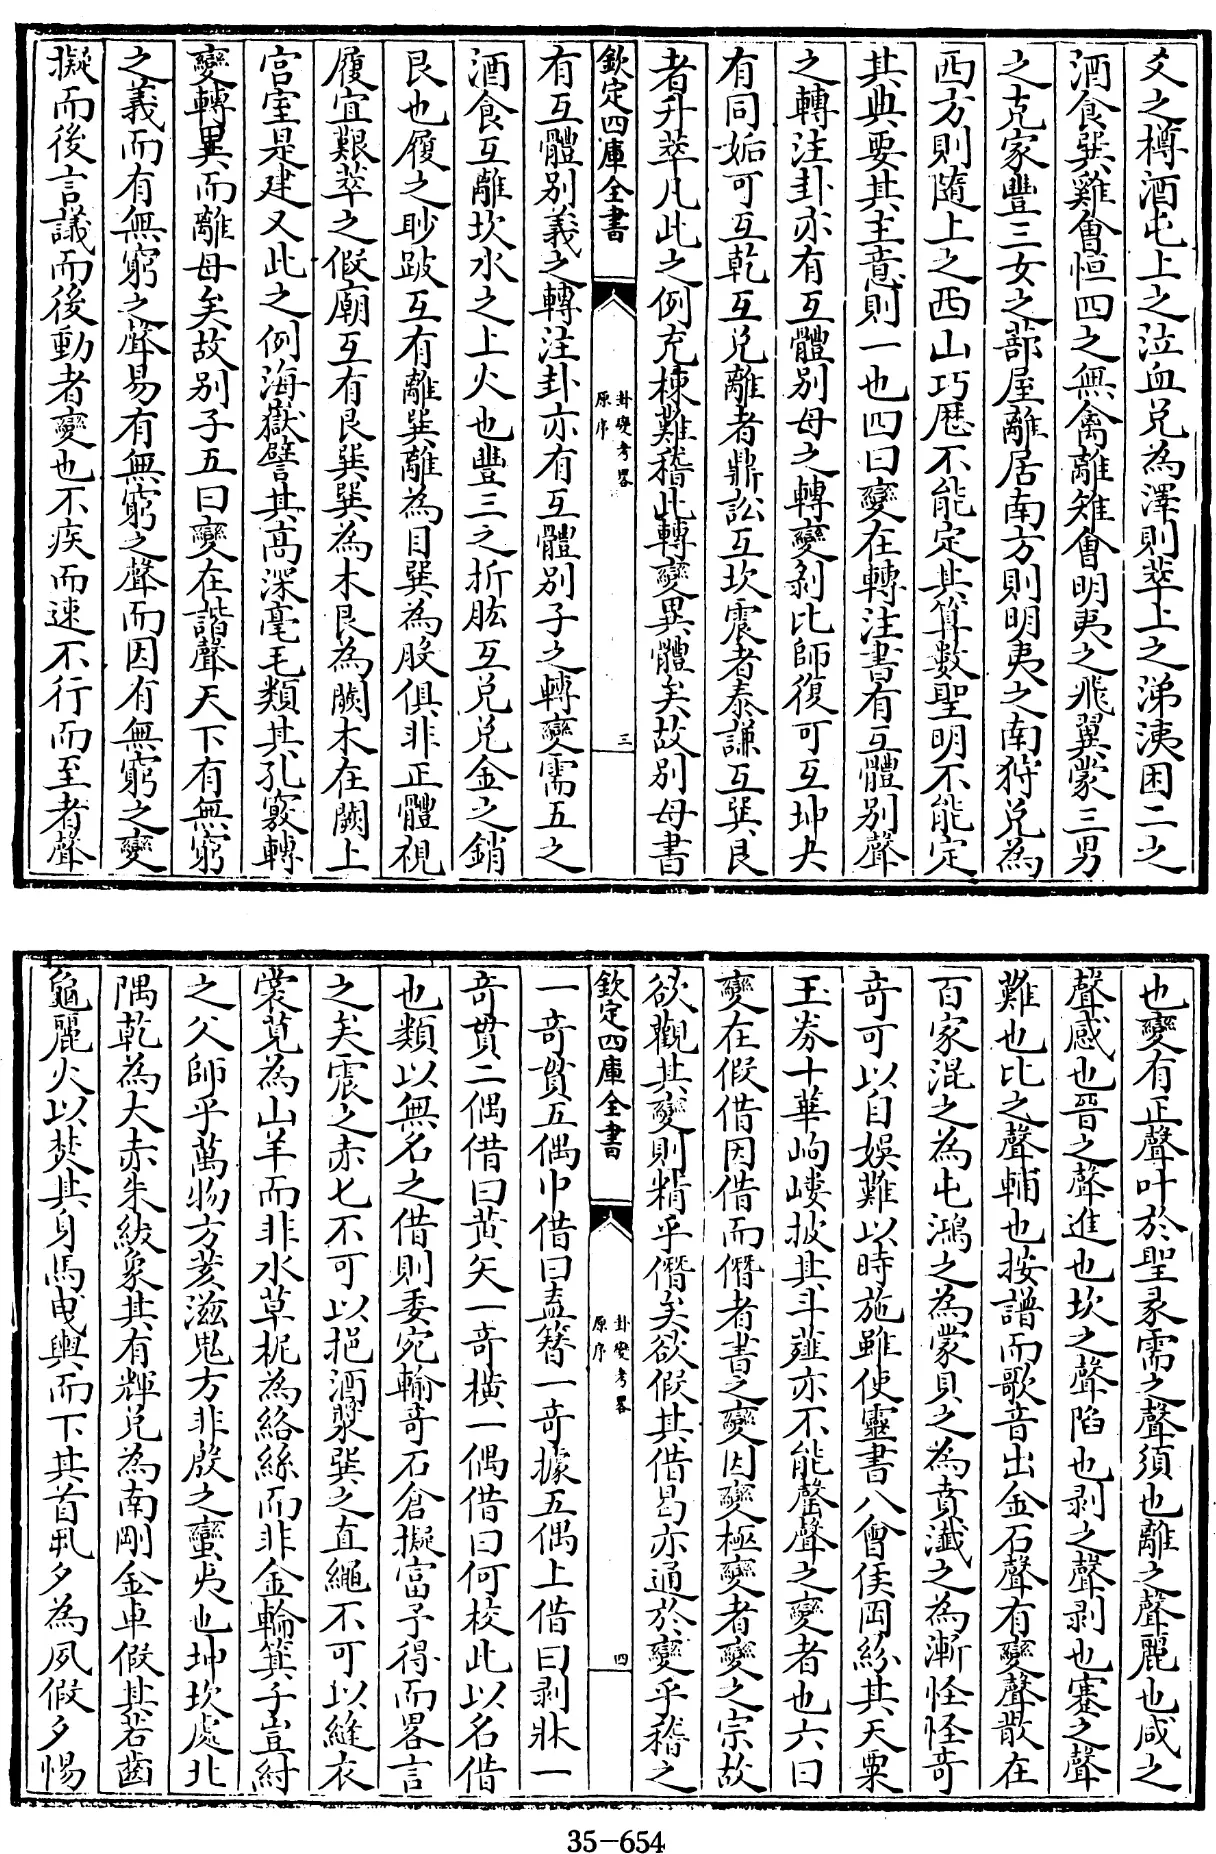 爻之樽酒屯上之泣血兌為澤則萃上之涕洟困二之
酒食巽雞會恒四之無禽離雉會明夷之飛翼蒙三男
之克家豐三女之蔀屋離居南方則明夷之南狩兌為
西方則隨上之西山巧歴不能定其算數聖明不能定
其典要其主意則一也四曰變在轉注書有互體別聲
之轉注卦亦有互體別母之轉變剝比師復可互坤夬
有同姤可互乾互兌離者鼎訟互坎震者泰謙互巽艮
者升萃凡此之例充棟難稽此轉變異體矣故別母書
欽定四庫全書
卦變考畧
原序
三
有互體別義之轉注卦亦有互體別子之轉變需五之
酒食互離坎水之上火也豐三之折肱互兌兌金之銷
艮也履之眇跛互有離巽離為目巽為股俱非正體視
履宜艱萃之假廟互有艮巽巽為木艮為闕木在闕上
宮室是建又此之例海嶽譬其高深毫毛類其孔竅轉
變轉異而離母矣故別子五曰變在諧聲天下有無窮
之義而有無窮之聲易有無窮之聲而因有無窮之變
擬而後言議而後動者變也不疾而速不行而至者聲
也變有正聲叶於聖彖需之聲須也離之聲麗也咸之
聲感也晉之聲進也坎之聲陷也剥之聲剥也蹇之聲
難也比之聲輔也按譜而歌音出金石聲有變聲散在
百家混之為屯鴻之為蒙貝之為賁瀸之為漸怪怪奇
奇可以自娛難以時施雖使靈書八會侯岡紛其天粟
玉券十華岣嶁披其斗薤亦不能罄聲之變者也六曰
變在假借因借而僭者書之變因變極變者變之宗故
欲觀其變則精乎僭矣欲假其借曷亦通於變乎稽之
欽定四庫全書
卦變考畧
原序
四
一奇貫五偶中借曰盍簪一奇據五偶上借曰剥牀一
奇貫二偶借曰黄矢一奇橫一偶借曰何校此以名借
也類以無名之借則委宛輸奇石倉擬富予得而畧言
之矣震之赤七不可以挹酒漿巽之直繩不可以縫衣
裳莧為山羊而非水草柅為絡絲而非金輪箕子豈紂
之父師乎萬物方荄滋鬼方非殷之蠻夷也坤坎處北
隅乾為大赤朱紱象其有輝兌為南剛金車假其若齒
龜麗火以焚其身馬曳輿而下其首丮夕為夙假夕惕
35-654